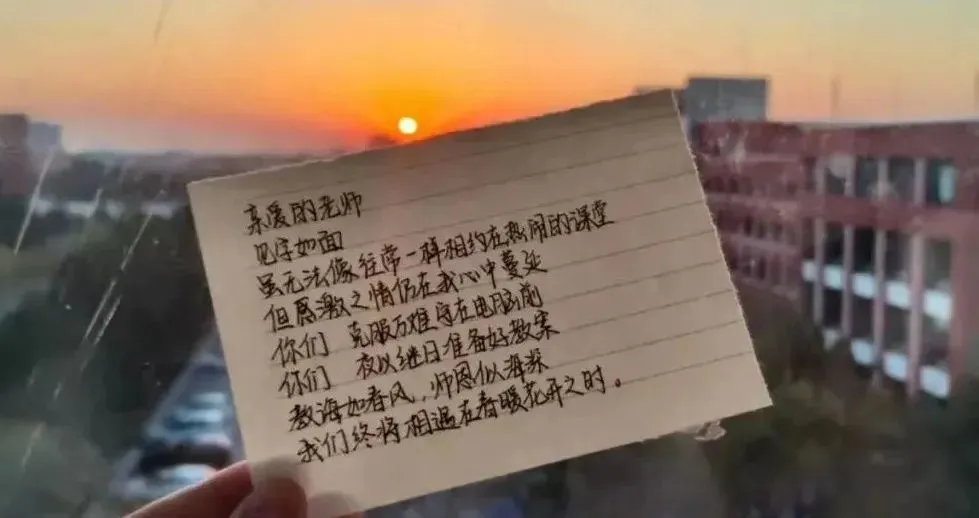 亲爱的老师
见字如面
虽无法像往常一样相约在热闹的课堂
但感激之情仍在我心中蔓延
你们 克服万难守在电脑前
你们 夜以继日准备好教案
教海如春风，师恩似海深
我们终将相遇在春暖花开之时。